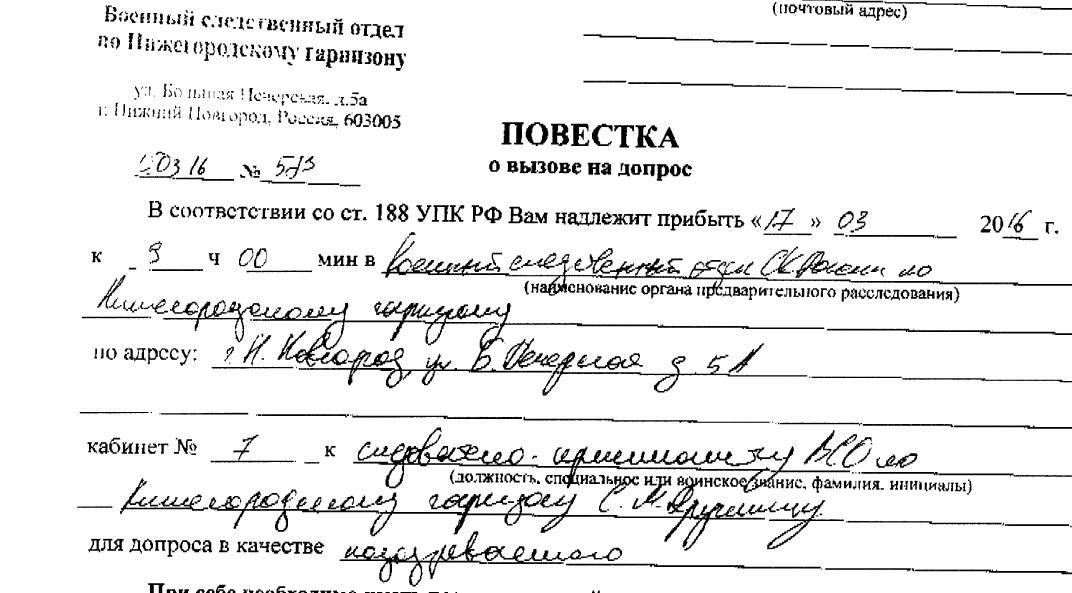 (почтовый адрес)
Военный следственный отдел
по Нижегородскому гарнизону
ул. Большая Печерская, д.5а
г. Нижний Новгород, Россия, 603005
ПОВЕСТКА
о вызове на допрос
0316 № 573
В соответствии со ст. 188 УПК РФ Вам надлежит прибыть «17» 03 2016 г.
к 9 ч 00 мин в Военный следственный отдел СК России по
(наименование органа предварительного расследования)
Нижегородскому гарнизону
по адресу: г. Н. Новгород ул. Б. Печерская д. 5А
кабинет № 7 к ВСО по
(должность, специальное или воинское звание, фамилия, инициалы)
Нижегородскому гарнизону С.М.
для допроса в качестве подозреваемого
При себе необходимо иметь